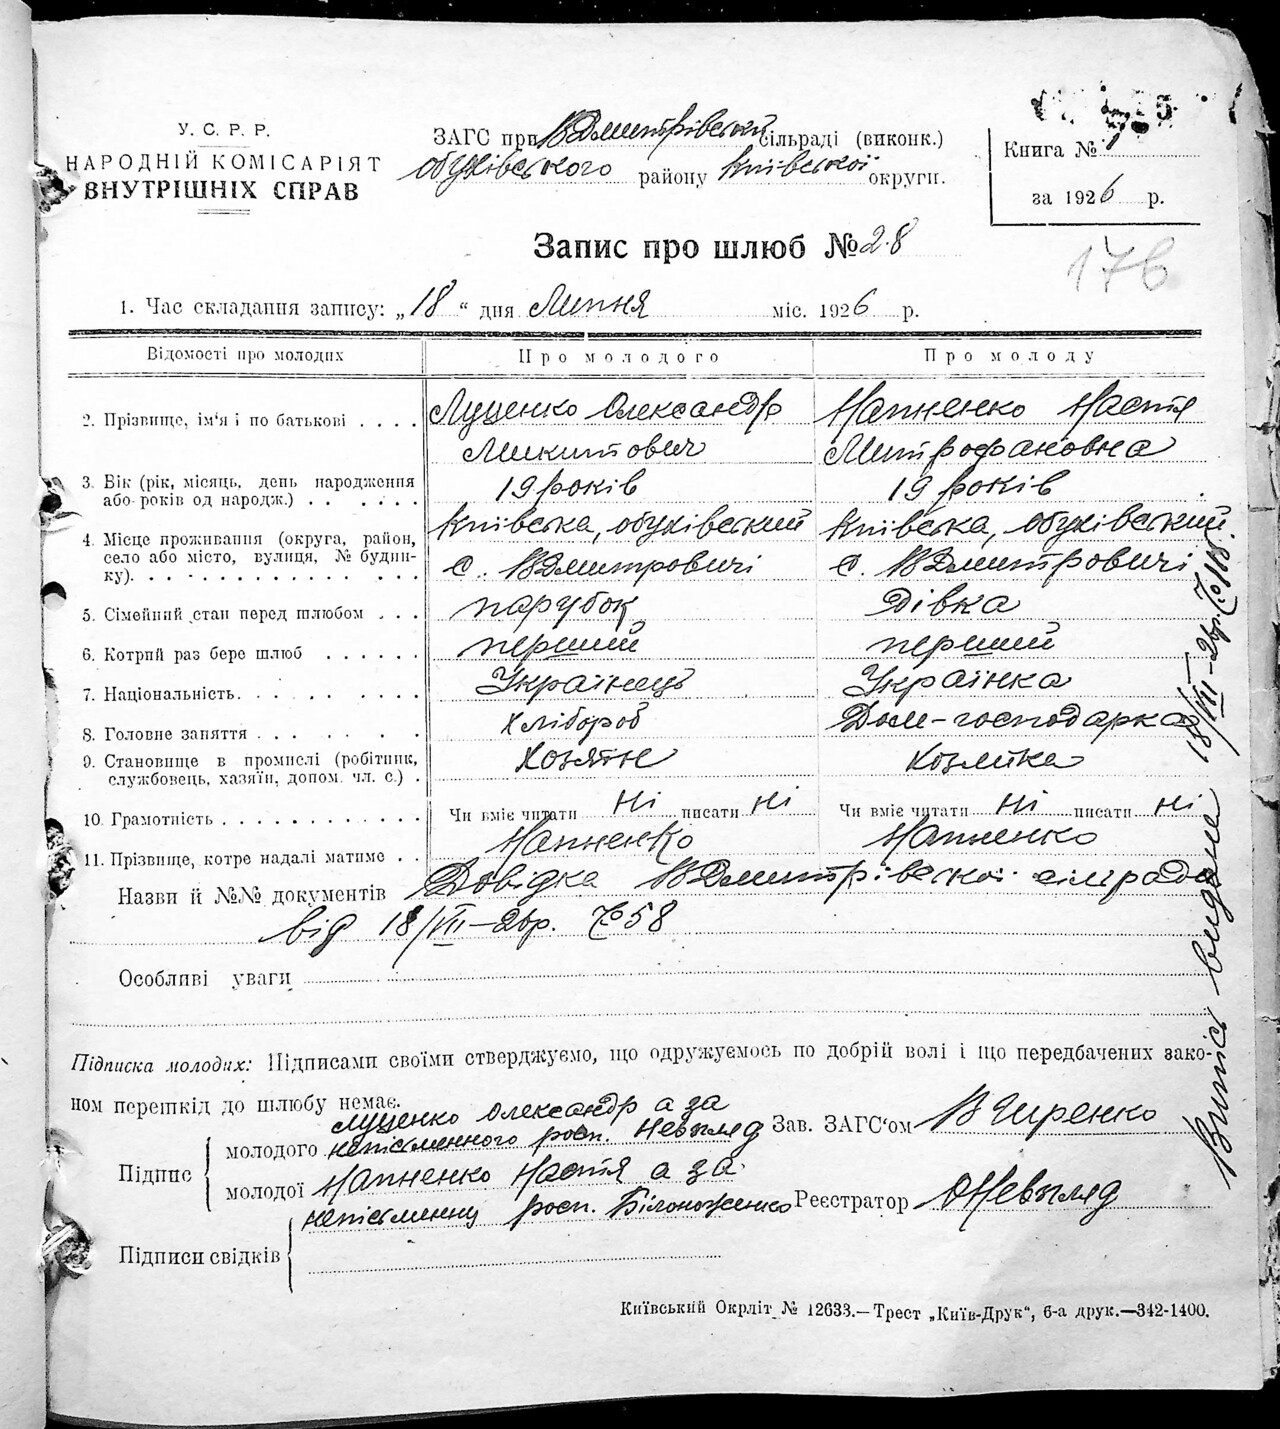 У. С. Р. Р.
НАРОДНІЙ КОМІСАРІЯТ
ВНУТРІШНІХ СПРАВ
ЗАГС при ВДмитрівській сільраді (виконк.)
Обухівського району Київської округи.
Книга №
за 1926 р.
Запис про шлюб № 28
176
1. Час складання запису: „18“ дня Липня міс. 1926 р.
Відомості про молодих Про молодого Про молоду
2. Прізвище, ім'я і по батькові . . . . Луценко Олександр Напненко Настя
Микитович Митрофановна
3. Вік (рік, місяць, день народження
або років од народж.) . . . . . . 19 років 19 років
4. Місце проживання (округа, район, Київська, обухівський Київська, обухівський
село або місто, вулиця, № будин- с. ВДмитровичі с. ВДмитровичі
ку).
5. Сімейний стан перед шлюбом . . . парубок дівка
6. Котрий раз бере шлюб . . . . . . перший перший
7. Національність. Українець Українка
8. Головне заняття . . . . . . . хлібороб Дом-господарка
9. Становище в промислі (робітник, Хозяїн Хозяйка
службовець, хазяїн, допом. чл. с.) .
10. Грамотність . . . . . . . . . . . . Чи вміє читати Ні писати Ні Чи вміє читати Ні писати Ні
11. Прізвище, котре надалі матиме . . Напненко Напненко
Назви й №№ документів Довідка ВДмитрівської сілради
від 18/VII-26р. № 58
Особливі уваги
Підписка молодих: Підписами своїми стверджуємо, що одружуємось по добрій волі і що передбачених зако-
ном перешкід до шлюбу немає.
Підпис
молодого Луценко Олександр а за
непісьменного росп. Невгляд
молодої Напненко Настя а за
непісьменну росп. Білоноженко
Зав. ЗАГС'ом
Реєстратор Невгляд
Підписи свідків
Київський Окрліт № 12633.—Трест „Київ-Друк“, 6-а друк.—342-1400.
Випісь видана 18/VII-26р. № 118.